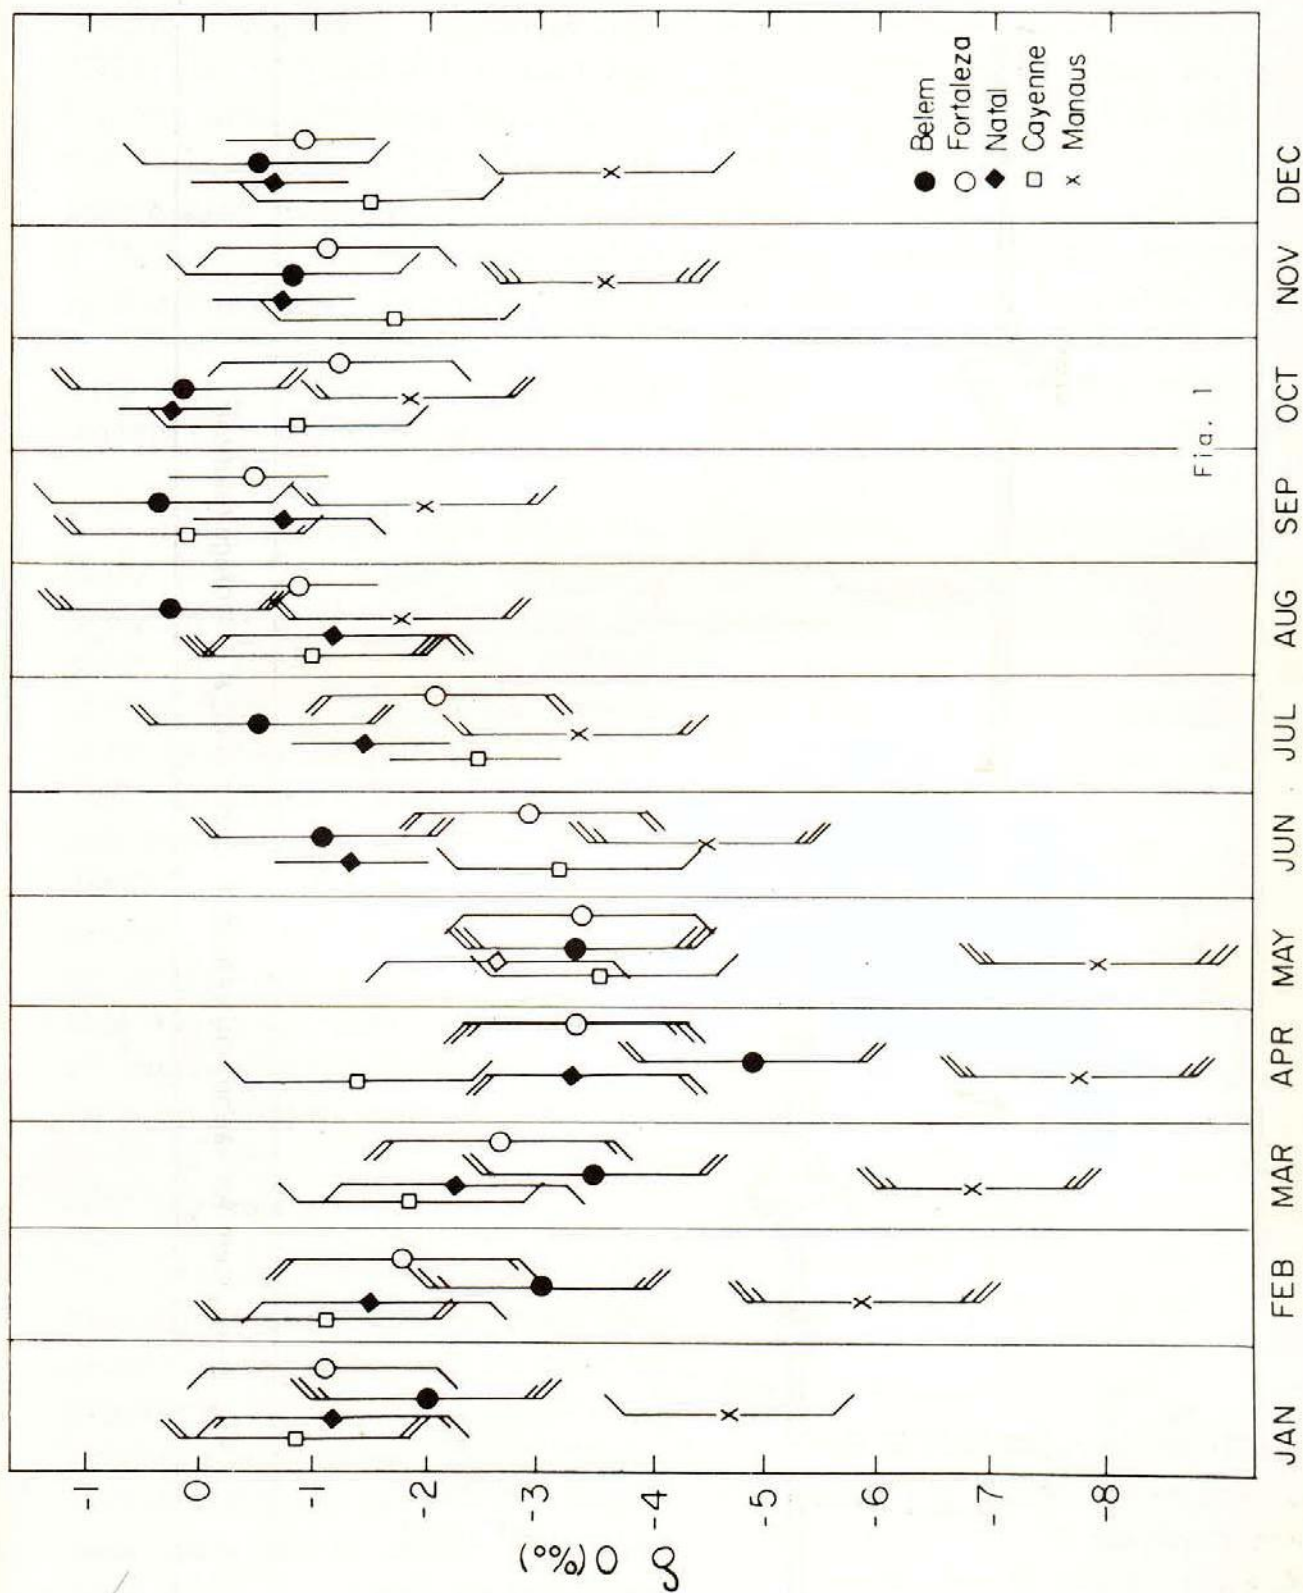 -1
0
-1
-2
-3
-4
-5
-6
-7
-8
δ O (‰)
JAN
FEB
MAR
APR
MAY
JUN
JUL
AUG
SEP
OCT
NOV
DEC
Belem
Fortaleza
Natal
Cayenne
Manaus
Fig. 1